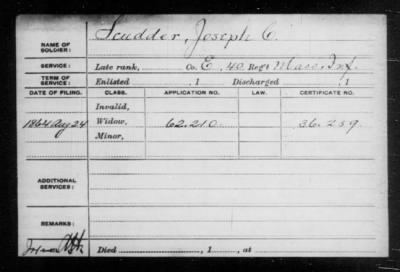 Scudder, Joseph C.
NAME OF SOLDIER:
SERVICE: Late rank, Co. E, 40 Reg't Mass. Inf.
TERM OF SERVICE: Enlisted , 1 Discharged , 1
DATE OF FILING. CLASS. APPLICATION NO. LAW. CERTIFICATE NO.
Invalid,
1864 Aug 24 Widow, 62.210. 36.259.
Minor,
ADDITIONAL SERVICES:
REMARKS:
Died , 1 , at